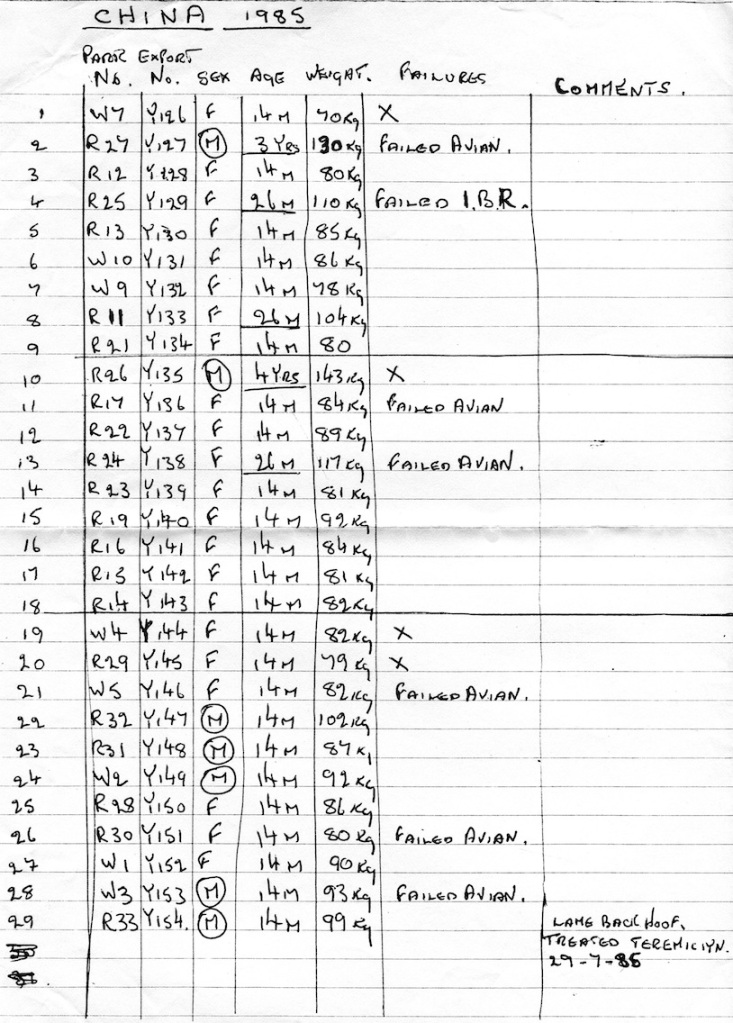 CHINA 1985
PARK EXPORT
No. No. SEX AGE WEIGHT. FAILURES COMMENTS.
1 W7 Y126 F 14M 70Kg X
2 R27 Y127 M 3 YRS 130Kg FAILED AVIAN.
3 R12 Y128 F 14M 80Kg
4 R25 Y129 F 26M 110Kg FAILED I.B.R.
5 R13 Y130 F 14M 85Kg
6 W10 Y131 F 14M 86Kg
7 W9 Y132 F 14M 78Kg
8 R11 Y133 F 26M 104Kg
9 R21 Y134 F 14M 80
10 R26 Y135 M 4YRS 143Kg X
11 R17 Y136 F 14M 84Kg FAILED AVIAN
12 R22 Y137 F 14M 89Kg
13 R24 Y138 F 26M 117Kg FAILED AVIAN.
14 R23 Y139 F 14M 81Kg
15 R19 Y140 F 14M 92Kg
16 R16 Y141 F 14M 84Kg
17 R15 Y142 F 14M 81Kg
18 R14 Y143 F 14M 82Kg
19 W4 Y144 F 14M 82Kg X
20 R29 Y145 F 14M 79Kg X
21 W5 Y146 F 14M 82Kg FAILED AVIAN.
22 R32 Y147 M 14M 102Kg
23 R31 Y148 M 14M 87K
24 W2 Y149 M 14M 92Kg
25 R28 Y150 F 14M 86Kg
26 R30 Y151 F 14M 80Kg FAILED AVIAN.
27 W1 Y152 F 14M 90Kg
28 W3 Y153 M 14M 93Kg FAILED AVIAN.
29 R33 Y154. M 14M 99Kg LAME BACK HOOF,
TREATED TEREMICIYN.
29-7-85